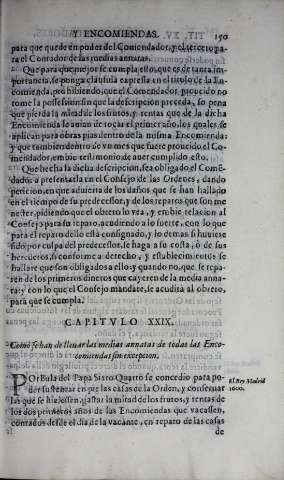 Y ENCOMIENDAS. 150
para que quede en poder del Comendador, y el tercero pa-
ra el Contador de las medias annatas.
Que para que mejor se cumpla esto, que es de tanta im-
portancia, se ponga clausula expressa en el titulo de la En-
comienda, prohibiendo, que el Comendador proueido no
tome la possession sin que la descripcion preceda, so pena
que pierda la mitad de los frutos, y rentas que de la dicha
Encomienda le auian de tocar el primer año, los quales se
aplican para obras pias dentro de la misma Encomienda:
y que tambien dentro de vn mes que fuere proueido el Co-
mendador, embie testimonio de auer cumplido esto.
Que hecha la dicha descripcion, sea obligado el Comē-
dador a presentarla en el Consejo de las Ordenes, dando
peticion, en que aduierta de los daños que se han hallado
en el tiempo de su predecessor, y de los reparos que son me
nester, pidiendo que el obrero lo vea, y embie relacion al
Consejo para su reparo, acudiendo a lo fuerte, con lo que
para el reparo dello està consignado, y lo demas si huuiere
sido por culpa del predecessor, se haga a su costa, ò de sus
herederos, si conforme a derecho, y establecimientos se
hallare que son obligados a ello, y quando no, que se repa-
ren de los primeros dineros que cayeren de la media anna-
ta: y con lo que el Consejo mandare, se acudirà al obrero,
para que se cumpla.
CAPITVLO XXIX.
Como se han de lleuar las medias annatas de todas las Enco-
miendas sin excepcion.
POr Bula del Papa Sixto Quarto se concedio para po-
der sustentar en pie las casas de la Orden, y conseruar
las que se hiziessen, gastar la mitad de los frutos, y rentas de
los dos primeros años de las Encomiendas que vacassen,
contados desde el dia de la vacante, en reparo de las casas
de
El Rey Madrid
1600.